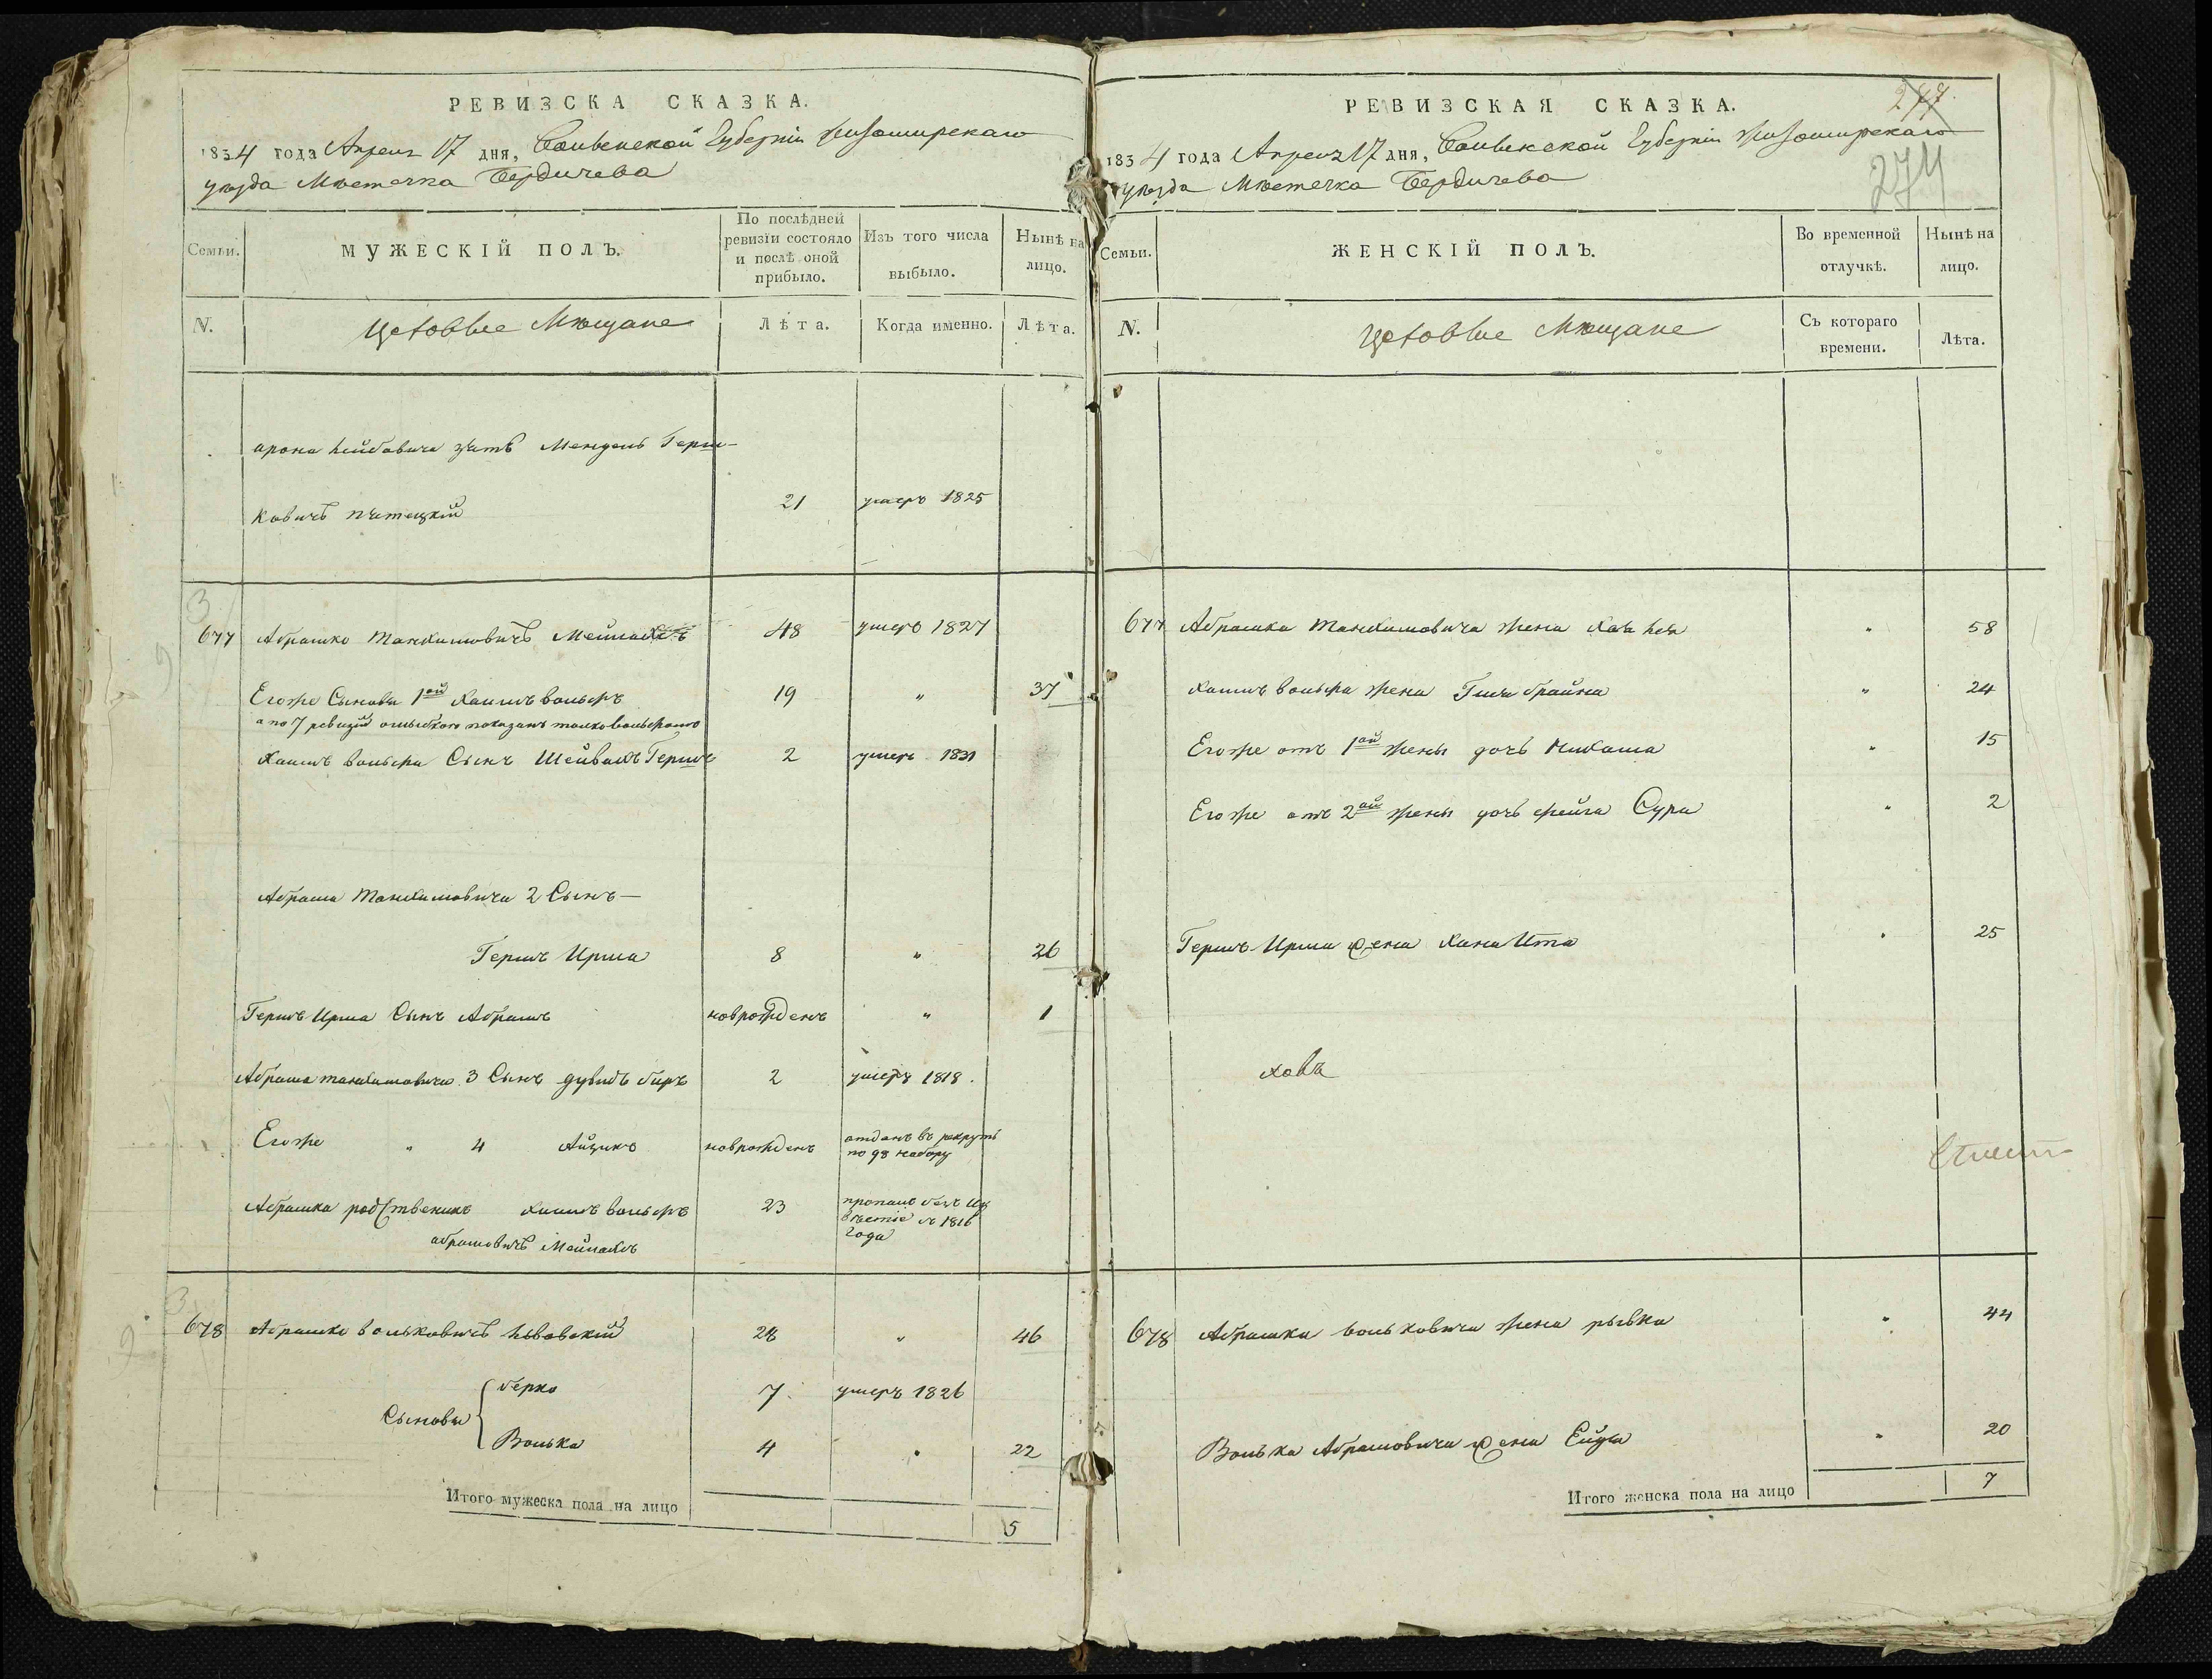 РЕВИЗСКА СКАЗКА.
1834 года Апреля 17 дня, Волынской Губерніи Житомирскаго
уезда Мѣстечка Бердичева
Семьи.
МУЖЕСКІЙ ПОЛЪ.
По послѣдней
ревизіи состояло
и послѣ оной
прибыло.
Изъ того числа
выбыло.
Нынѣ на
лицо.
N.
Цеховые Мѣщане
Лѣта.
Когда именно.
Лѣта.
арона Лейбовича зять Мендель Герш-
ковичъ 21 умеръ 1825
677 Абрашко Танхимовичъ 48 умеръ 1827
Егоже Сыновья 1ой Хаимъ вольфъ 19 " 37
а по 7 ревизіи показанъ только вольфомъ
Хаимъ вольфа Сынъ Гершъ 2 умеръ 1831
Абраша Танхимовича 2 Сынъ —
Гершъ Ирма 8 " 26
Гершъ Ирма Сынъ Абрамъ новрожденъ " 1
Абраша танхимовича 3 Сынъ дувидъ беръ 2 умеръ 1818.
Егоже " 4 Айзикъ новрожденъ отданъ въ рекруты
по 98 набору
Абрашка родственикъ Хаимъ вольфъ 23 пропалъ безъ из
вѣстіе съ 1816
года
абрамовичъ
678 Абрашко вольковичъ 28 " 46
Сыновья
берко 7. умеръ 1826
Волька 4 " 22
Итого мужеска пола на лицо
5
РЕВИЗСКАЯ СКАЗКА.
274
1834 года Апреля 17 дня, Волынской Губерніи Житомирскаго
уезда Мѣстечка Бердичева
Семьи.
ЖЕНСКІЙ ПОЛЪ.
Во временной
отлучкѣ.
Нынѣ на
лицо.
N.
Цеховые Мѣщане
Съ котораго
времени.
Лѣта.
677 Абрашка Танхимовича жена Хая Лея " 58
Хаимъ вольфа жена брайна " 24
Егоже отъ 1ой жены дочь " 15
Егоже отъ 2ой жены дочь фейга Сура " 2
Гершъ Ирма жена Хана Ита " 25
678 Абрашка вольковича жена рывка " 44
Волька Абрамовича жена " 20
Итого женска пола на лицо
7